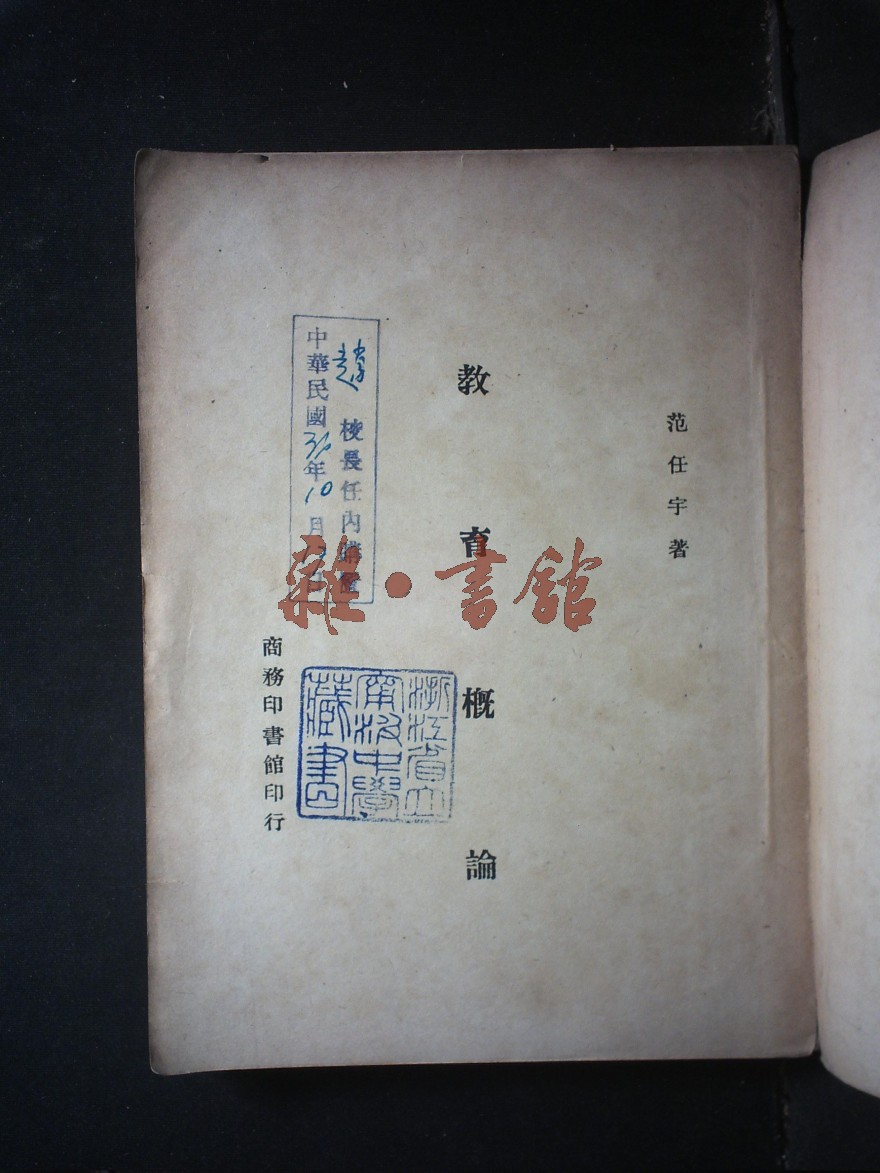 范任宇著
教育概論
趙 校長任內購置
中華民國36年10月 日
浙江省立
中學
藏書
商務印書館印行
雜·書館